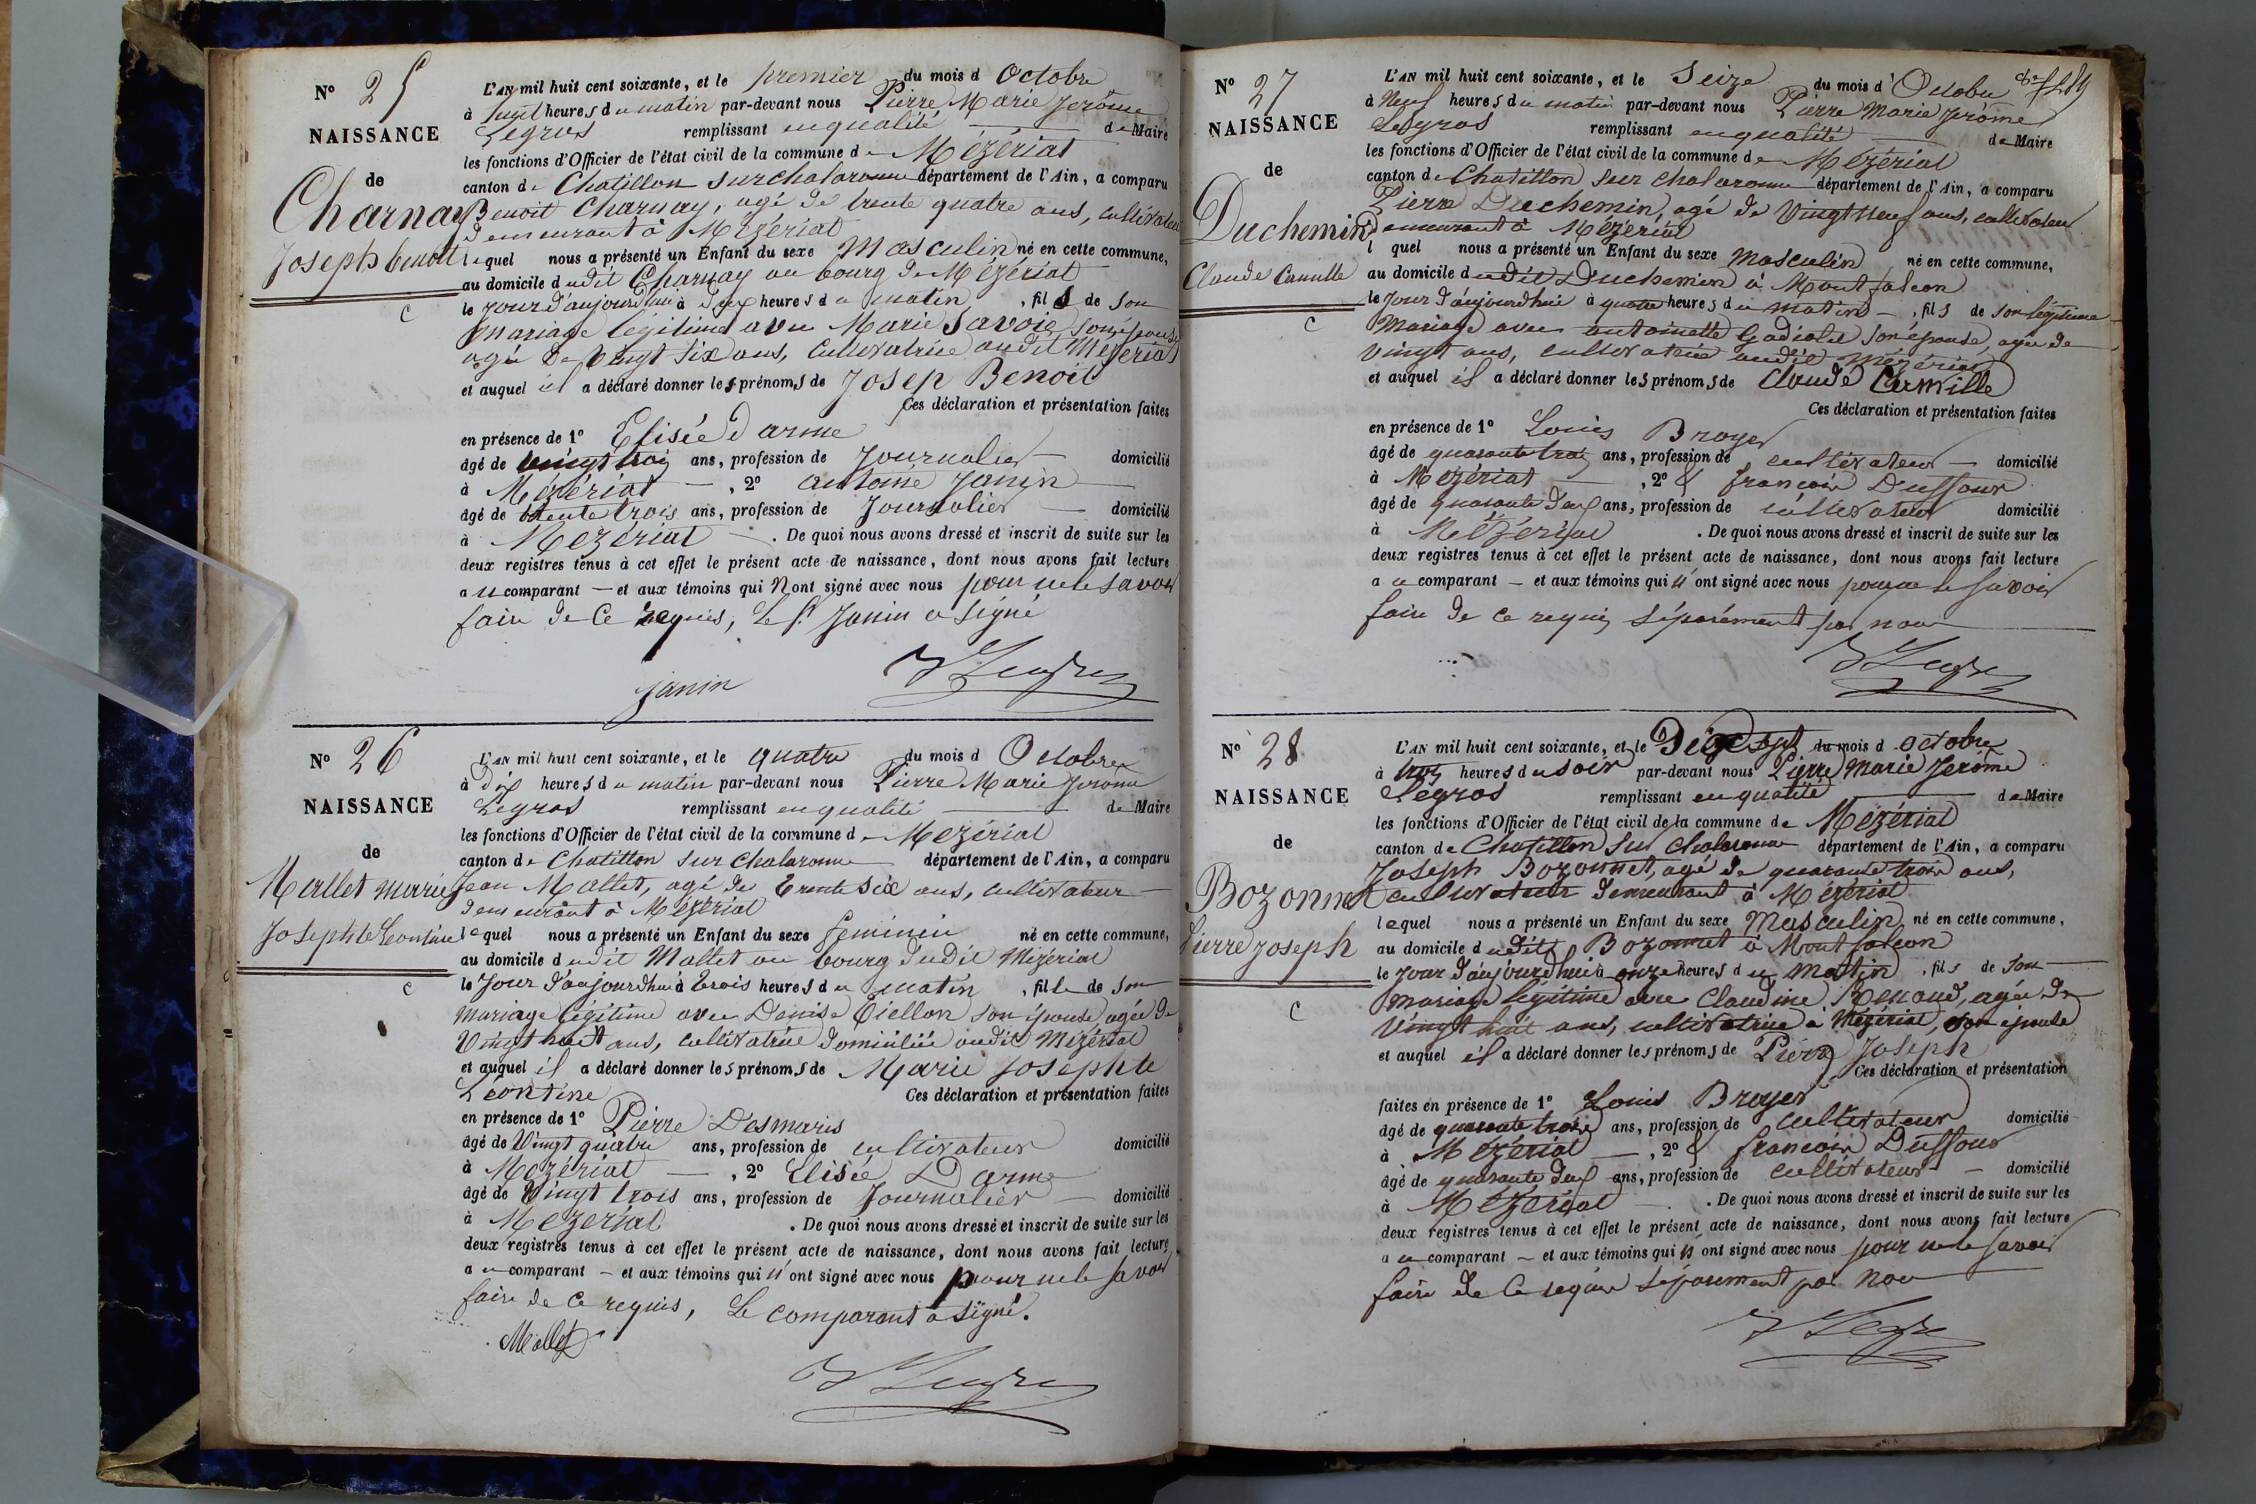 N° 25
NAISSANCE
de
Charnay
Joseph benoit
c
L'AN mil huit cent soixante, et le premier du mois d Octobre
à huit heures du matin par-devant nous Pierre Marie Jerôme
Legros remplissant en qualité de Maire
les fonctions d'Officier de l'état civil de la commune de Mézériat
canton de Chatillon sur chalaronne département de l'Ain, a comparu
Benoit Charnay, agé de trente quatre ans, cultivateur
demeurant à Mézériat
lequel nous a présenté un Enfant du sexe Masculin né en cette commune,
au domicile dudit Charnay au bourg de Mézériat
le jour d'aujourd'hui à heures du matin, fils de son
mariage légitime avec Marie Savoie son épouse
agée de Vingt six ans, Cultivatrice audit Mézériat
et auquel il a déclaré donner les prénoms de Josep Benoit
Ces déclaration et présentation faites
en présence de 1° Elisée Darme
âgé de vingt trois ans, profession de Journalier domicilié
à Mézériat , 2° antoine Janin
âgé de trente trois ans, profession de Journalier domicilié
à Mezériat . De quoi nous avons dressé et inscrit de suite sur les
deux registres tenus à cet effet le présent acte de naissance, dont nous avons fait lecture
au comparant et aux témoins qui N'ont signé avec nous pour ne le savoir
faire de ce requis, Le sr Janin a signé
janin
N° 26
NAISSANCE
de
Mallet marie
Josephte Leontine
c
L'AN mil huit cent soixante, et le quatre du mois d Octobre
à dix heures du matin par-devant nous Pierre Marie Jerome
Legros remplissant en qualité de Maire
les fonctions d'Officier de l'état civil de la commune de Mezériat
canton de Chatillon sur chalaronne département de l'Ain, a comparu
Jean Mallet, agé de trente six ans, cultivateur
demeurant à Mézériat
lequel nous a présenté un Enfant du sexe feminin né en cette commune,
au domicile dudit Mallet au bourg dudit Mézériat
le Jour d'aujourd'hui à trois heures du matin, fille de son
mariage légitime avec Denise son épouse agée de
Vingt huit ans, cultivatrice domiciliée audit Mézériat
et auquel il a déclaré donner les prénoms de Marie Josephte
Léontine Ces déclaration et présentation faites
en présence de 1° Pierre Desmaris
âgé de Vingt quatre ans, profession de cultivateur domicilié
à Mezériat , 2° Elisée Darme
âgé de Vingt trois ans, profession de Journalier domicilié
à Mezériat . De quoi nous avons dressé et inscrit de suite sur les
deux registres tenus à cet effet le présent acte de naissance, dont nous avons fait lecture
au comparant et aux témoins qui n'ont signé avec nous pour ne le savoir
faire de ce requis, Le comparant a signé.
Mallet
N° 27
NAISSANCE
de
Duchemin
Claude Camille
c
L'AN mil huit cent soixante, et le Seize du mois d'Octobre
à Neuf heures du matin par-devant nous Pierre Marie Jerôme
Legros remplissant en qualité de Maire
les fonctions d'Officier de l'état civil de la commune de Mézériat
canton de Chatillon sur chalaronne département de l'Ain, a comparu
Pierre Duchemin, agé de Vingt neuf ans, cultivateur
demeurant à Mézériat
l quel nous a présenté un Enfant du sexe Masculin né en cette commune,
au domicile dudit Duchemin à Montfalcon
le jour d'aujourdhui à quatre heures du matin, fils de son légitime
Mariage avec antoinette son épouse, agée de
vingt ans, cultivatrice audit Mézériat
et auquel il a déclaré donner les prénoms de Claude Camille
Ces déclaration et présentation faites
en présence de 1° Louis Broyer
âgé de quarante trois ans, profession de cultivateur domicilié
à Mézériat , 2° & françois Duffour
âgé de quarante deux ans, profession de cultivateur domicilié
à Mézériat . De quoi nous avons dressé et inscrit de suite sur les
deux registres tenus à cet effet le présent acte de naissance, dont nous avons fait lecture
au comparant et aux témoins qui n'ont signé avec nous pour ne le savoir
faire de ce requis séparément par nou
N° 28
NAISSANCE
de
Bozonnet
Pierre joseph
c
L'AN mil huit cent soixante, et le Dix sept du mois d Octobre
à trois heures du soir par-devant nous Pierre Marie Jerôme
Legros remplissant en qualité de Maire
les fonctions d'Officier de l'état civil de la commune de Mézériat
canton de Chatillon sur chalaronne département de l'Ain, a comparu
Joseph Bozonnet, agé de quarante trois ans,
cultivateur demeurant à Mézériat
lequel nous a présenté un Enfant du sexe Masculin né en cette commune,
au domicile dudit Bozonnet à Montfalcon
le jour d'aujourd'hui à onze heures du matin, fils de son
mariage légitime avec Claudine Renaud, agée de
Vingt huit ans, cultivatrice à Mézériat, son epouse
et auquel il a déclaré donner les prénoms de Pierre Joseph
Ces déclaration et présentation
faites en présence de 1° Louis Broyer
âgé de quarante trois ans, profession de cultivateur domicilié
à Mézériat , 2° & françois Duffour
âgé de quarante deux ans, profession de cultivateur domicilié
à Mézériat . De quoi nous avons dressé et inscrit de suite sur les
deux registres tenus à cet effet le présent acte de naissance, dont nous avons fait lecture
au comparant et aux témoins qui n'ont signé avec nous pour ne le savoir
faire de ce requis séparement par nou